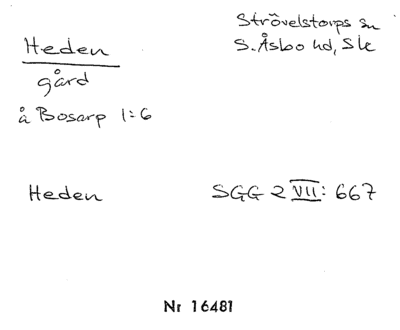 Heden
Strövelstorps sn
S. Åsbo hd, Sk
gård
å Bosarp 1:6
Heden
SGG 2 VII: 667
Nr 16481